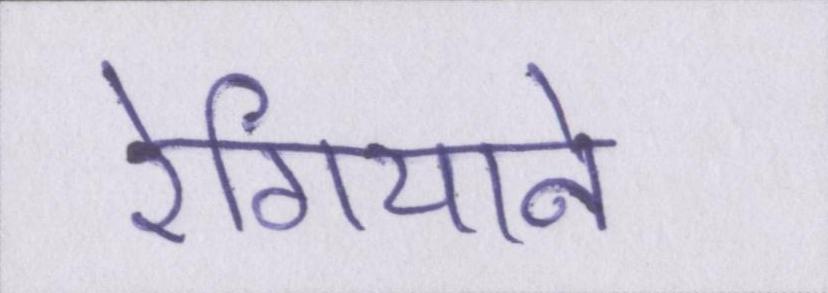 रेंगियाने